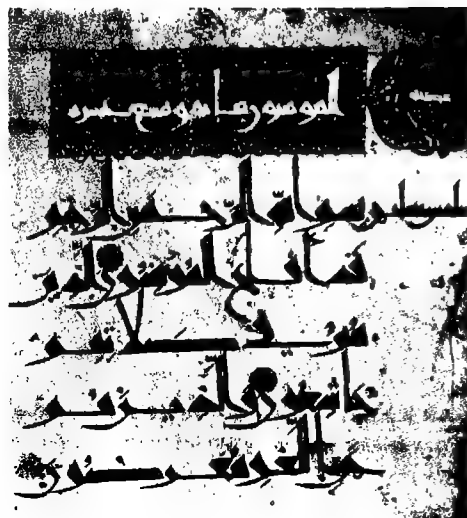 المومنون مايه وتسع عشره
بسم الله الرحمن الرحيم
قد افلح المومنون الذين
هم في صلاتهم
خاشعون والذين هم
عن اللغو معرضون